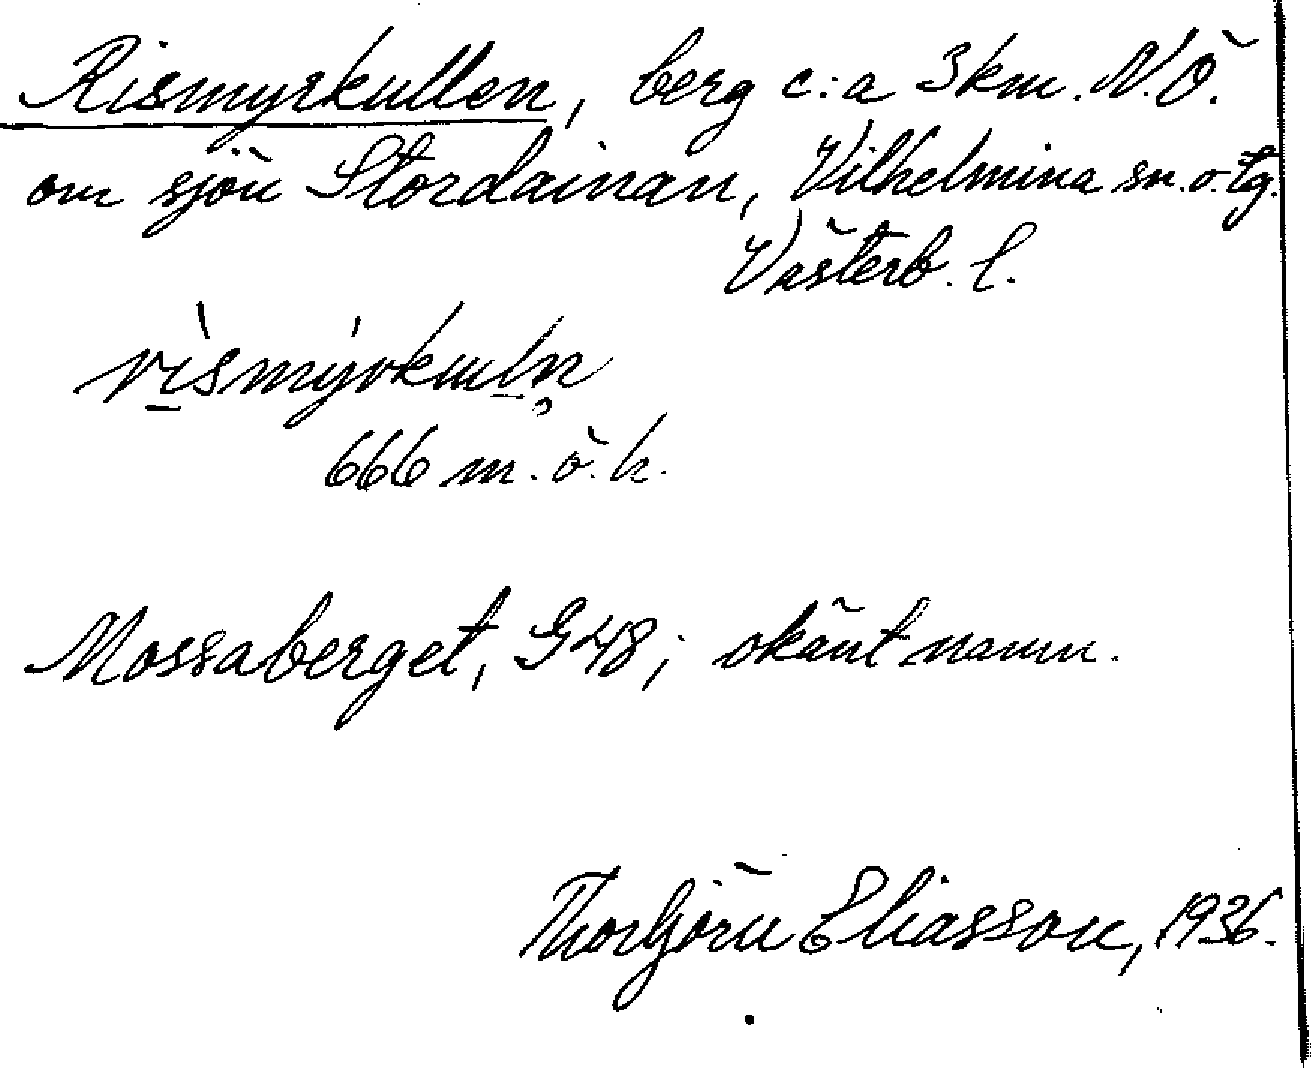 Rismyrkullen, berg c:a 3 km. N.Ö.
om sjön Stordainan, Vilhelmina sn. o. tg.
Västerb. l.
rìsmýrkuln̥
666 m. ö. h.
Mossaberget, G48; okänt namn.
Thorbjörn Eliasson, 1936.